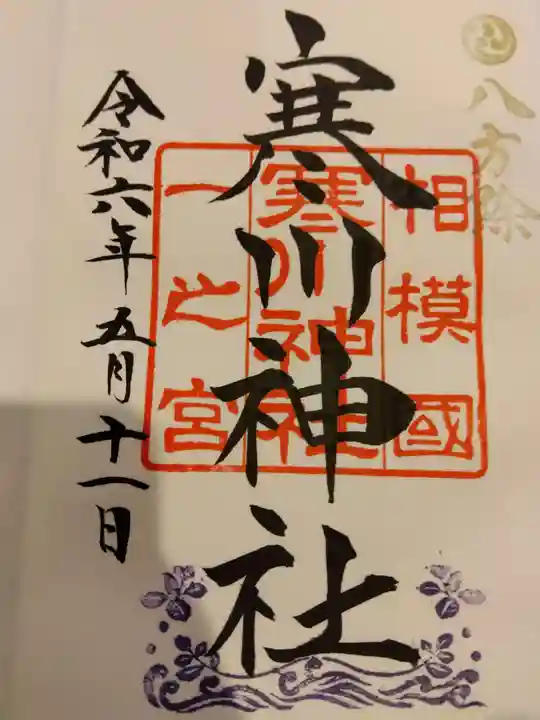 八方除
相模國
寒川神社
一之宮
寒川神社
令和六年五月十一日